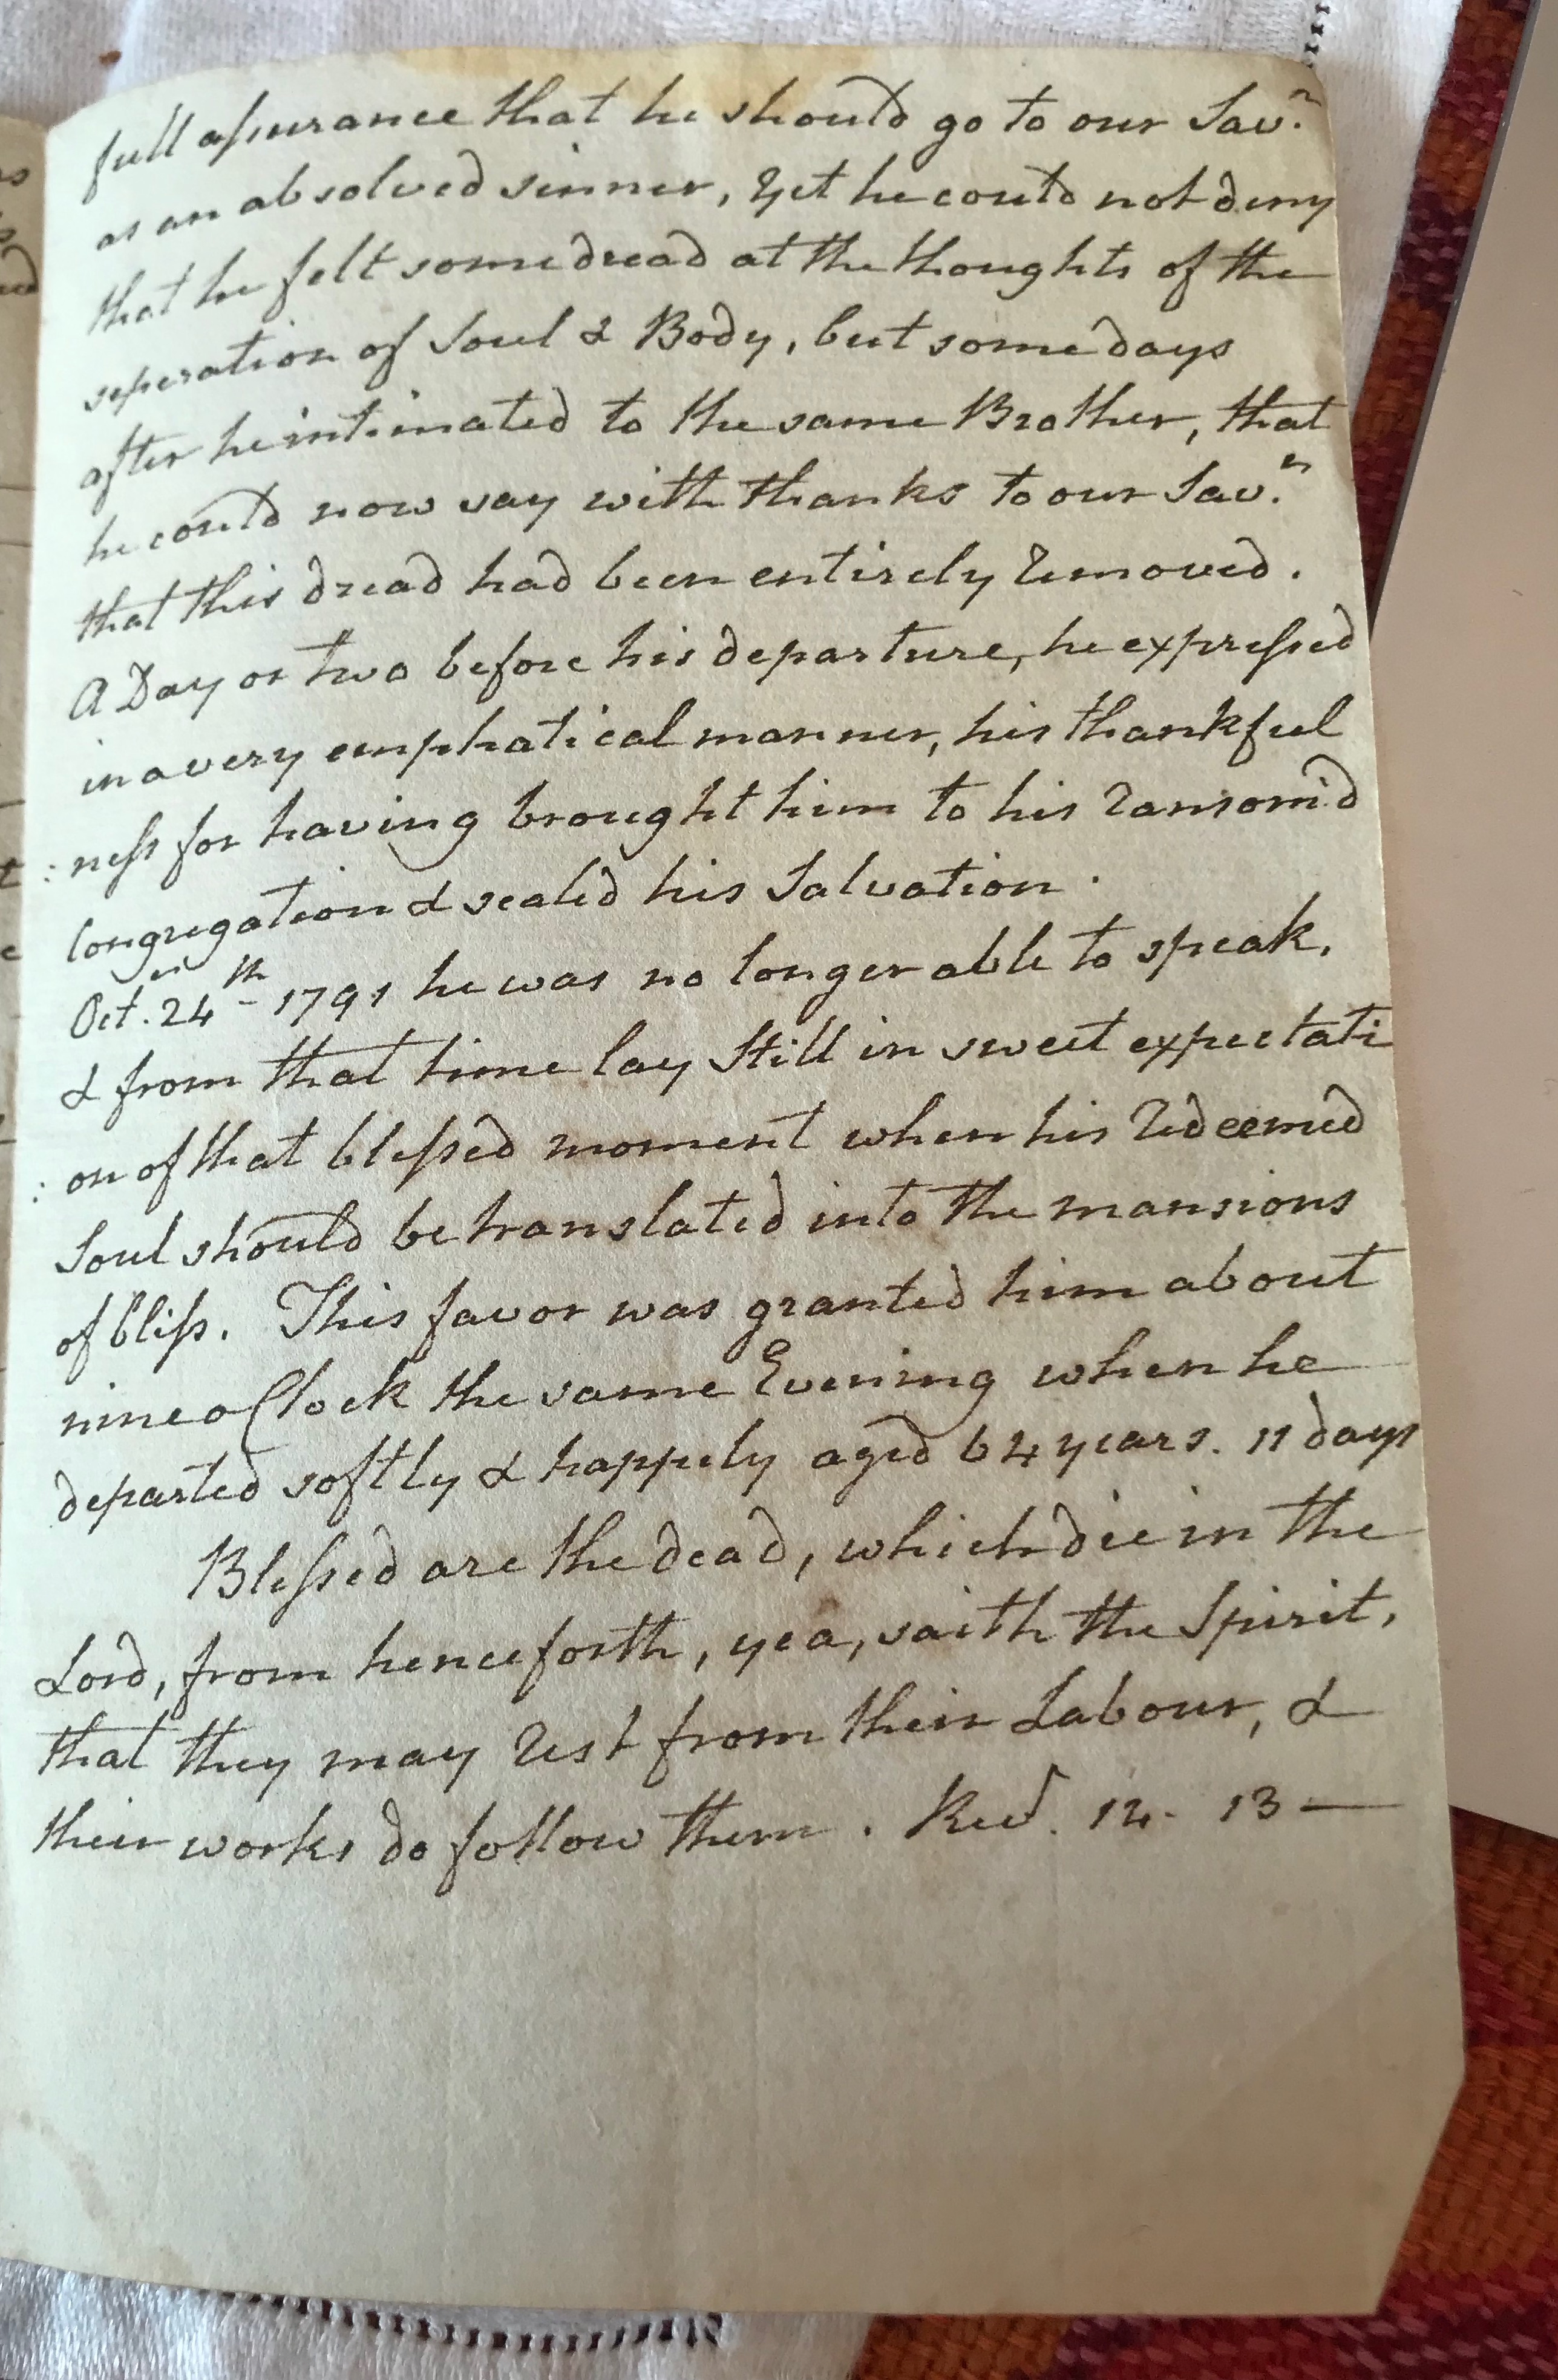 full assurance that he should go to our Sav.r
as an absolved sinner, Yet he could not deny
that he felt some dread at the thoughts of the
seperation of Soul & Body, but some days
after he intimated to the same Brother, that
he could now say with thanks to our Sav.r
that this dread had been entirely removed.
A Day or two before his departure, he expressed
in a very emphatical manner, his thankful
:ness for having brought him to his ransom'd
Congregation & sealed his Salvation.
Oct. 24th 1791 he was no longer able to speak,
& from that time lay still in sweet expectati
:on of that blessed moment when his redeemed
Soul should be translated into the mansions
of bliss. This favor was granted him about
nine o Clock the same Evening when he
departed softly & happily aged 64 years. 11 days
Blessed are the dead, which die in the
Lord, from henceforth, yea, saith the Spirit,
that they may rest from their Labour, &
their works do follow them. Rev. 14. 13 —